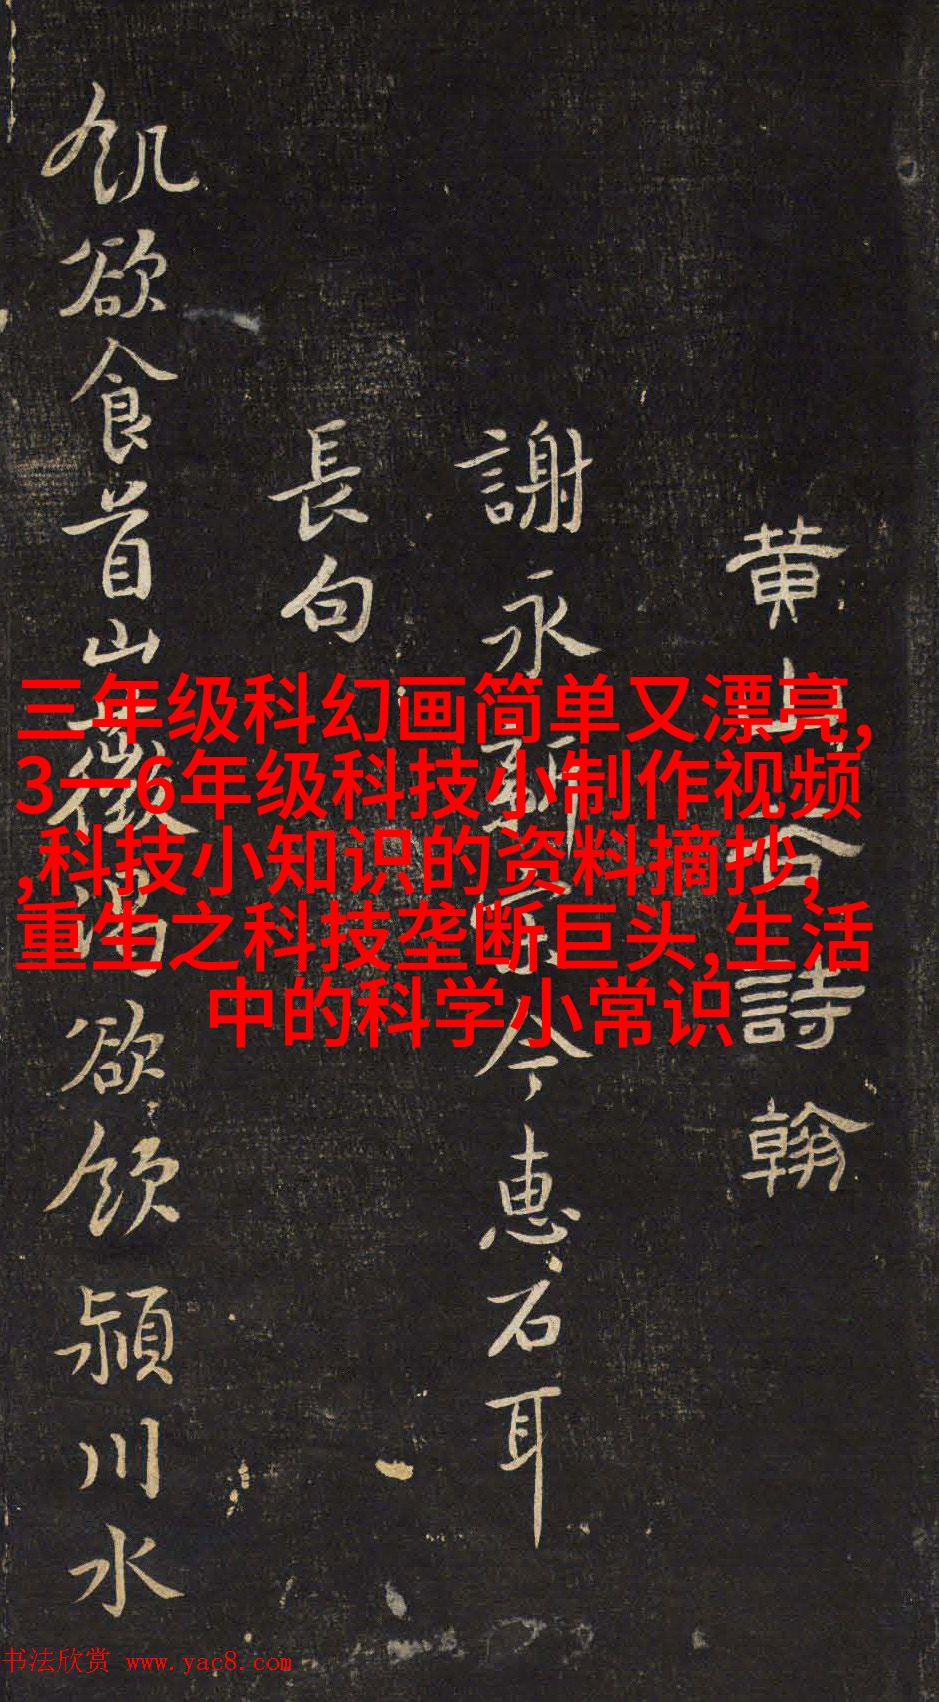 黄山谷詩翰
謝永新宗令惠石耳
長句
飢欲食首山薇渴欲飲潁川水
三年级科幻画简单又漂亮,
3一6年级科技小制作视频
,科技小知识的资料摘抄,
重生之科技垄断巨头,生活
中的科学小常识
书法欣赏 www.yac8.com